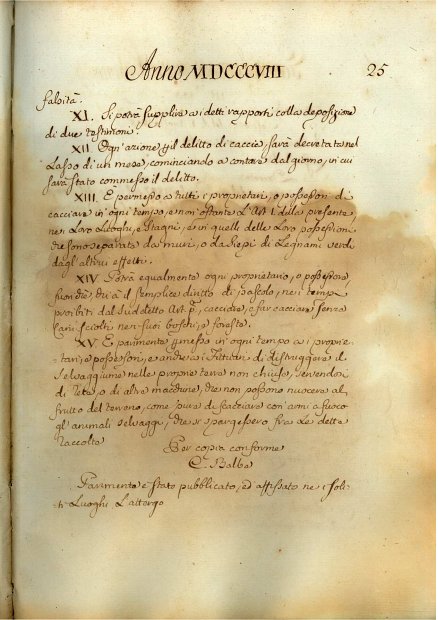 Anno MDCCCVIII 25
falsità.
XI. Si potrà supplire a i detti rapporti colla deposizione
di due testimoni.
XII Ogn'azione p il delitto di caccia, sarà decretata nel
Lasso di un mese, cominciando a contare dal giorno, in cui
sarà stato commesso il delitto.
XIII. È permesso a tutti i proprietari, o possessori di
cacciare in ogni tempo, e non ostante L'Art. I. della presente
ne i Loro Laghi, e Stagni, e in quelli delle Loro possessioni
che sono separate da muri, o da siepi di Legnami verdi
dagl'altrui effetti.
XIV Potrà equalmente ogni proprietario, o possessore
fuorchè, chi à il semplice diritto di pascolo, ne i tempi
proibiti dal suddetto Art. p.º, cacciare, e far cacciare senza
Cani sciolti nei suoi boschi, e foreste.
XV È parimente pmesso in ogni tempo a i proprie-
tari, e possessori, e anche a i fittuari di distruggere il
selvaggiume nelle proprie terre non chiuse, servendosi
di Rete, o di altre macchine, che non possono nuocere al
frutto del terreno, come pure di scacciare con armi a fuoco
gl'animali selvaggi, che si spargessero fra Le dette
raccolte
Per copia conforme
C. Balbo
Parimente è stato pubblicato, ed affissato ne i soli-
ti Luoghi L'attergo